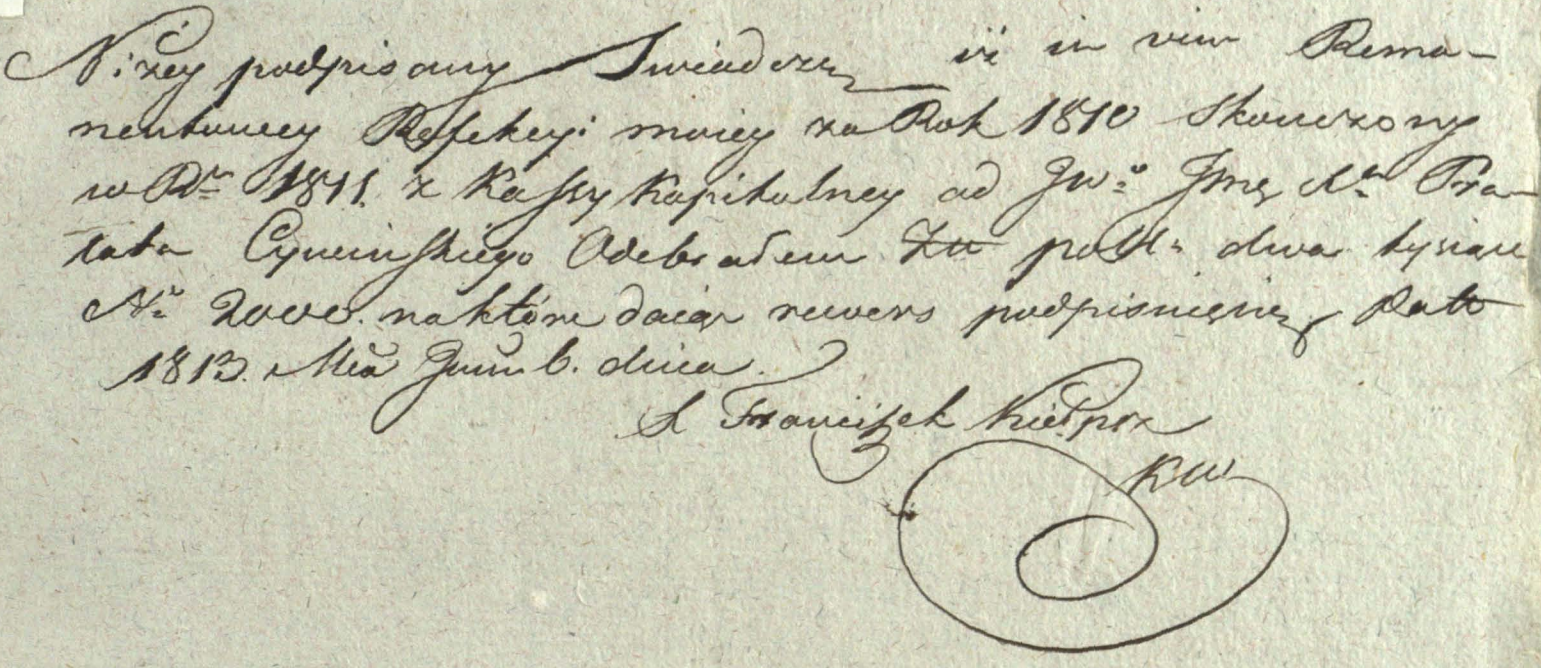 Niżey podpisany Swiadczę iż in vim Rema-
nentowey Refekcyi moiey za Rok 1810 Skonczony
w Rn 1811. z Kassy Kapitulney od JWo Jmę Xa Pra-
łata Cywinskiego Odebrałem po dwa tysiące
No 2000. na które daiąc rewers podpisuięsię Datt
1813. Mca Juni 6. dnia.
X Franciszek
KW